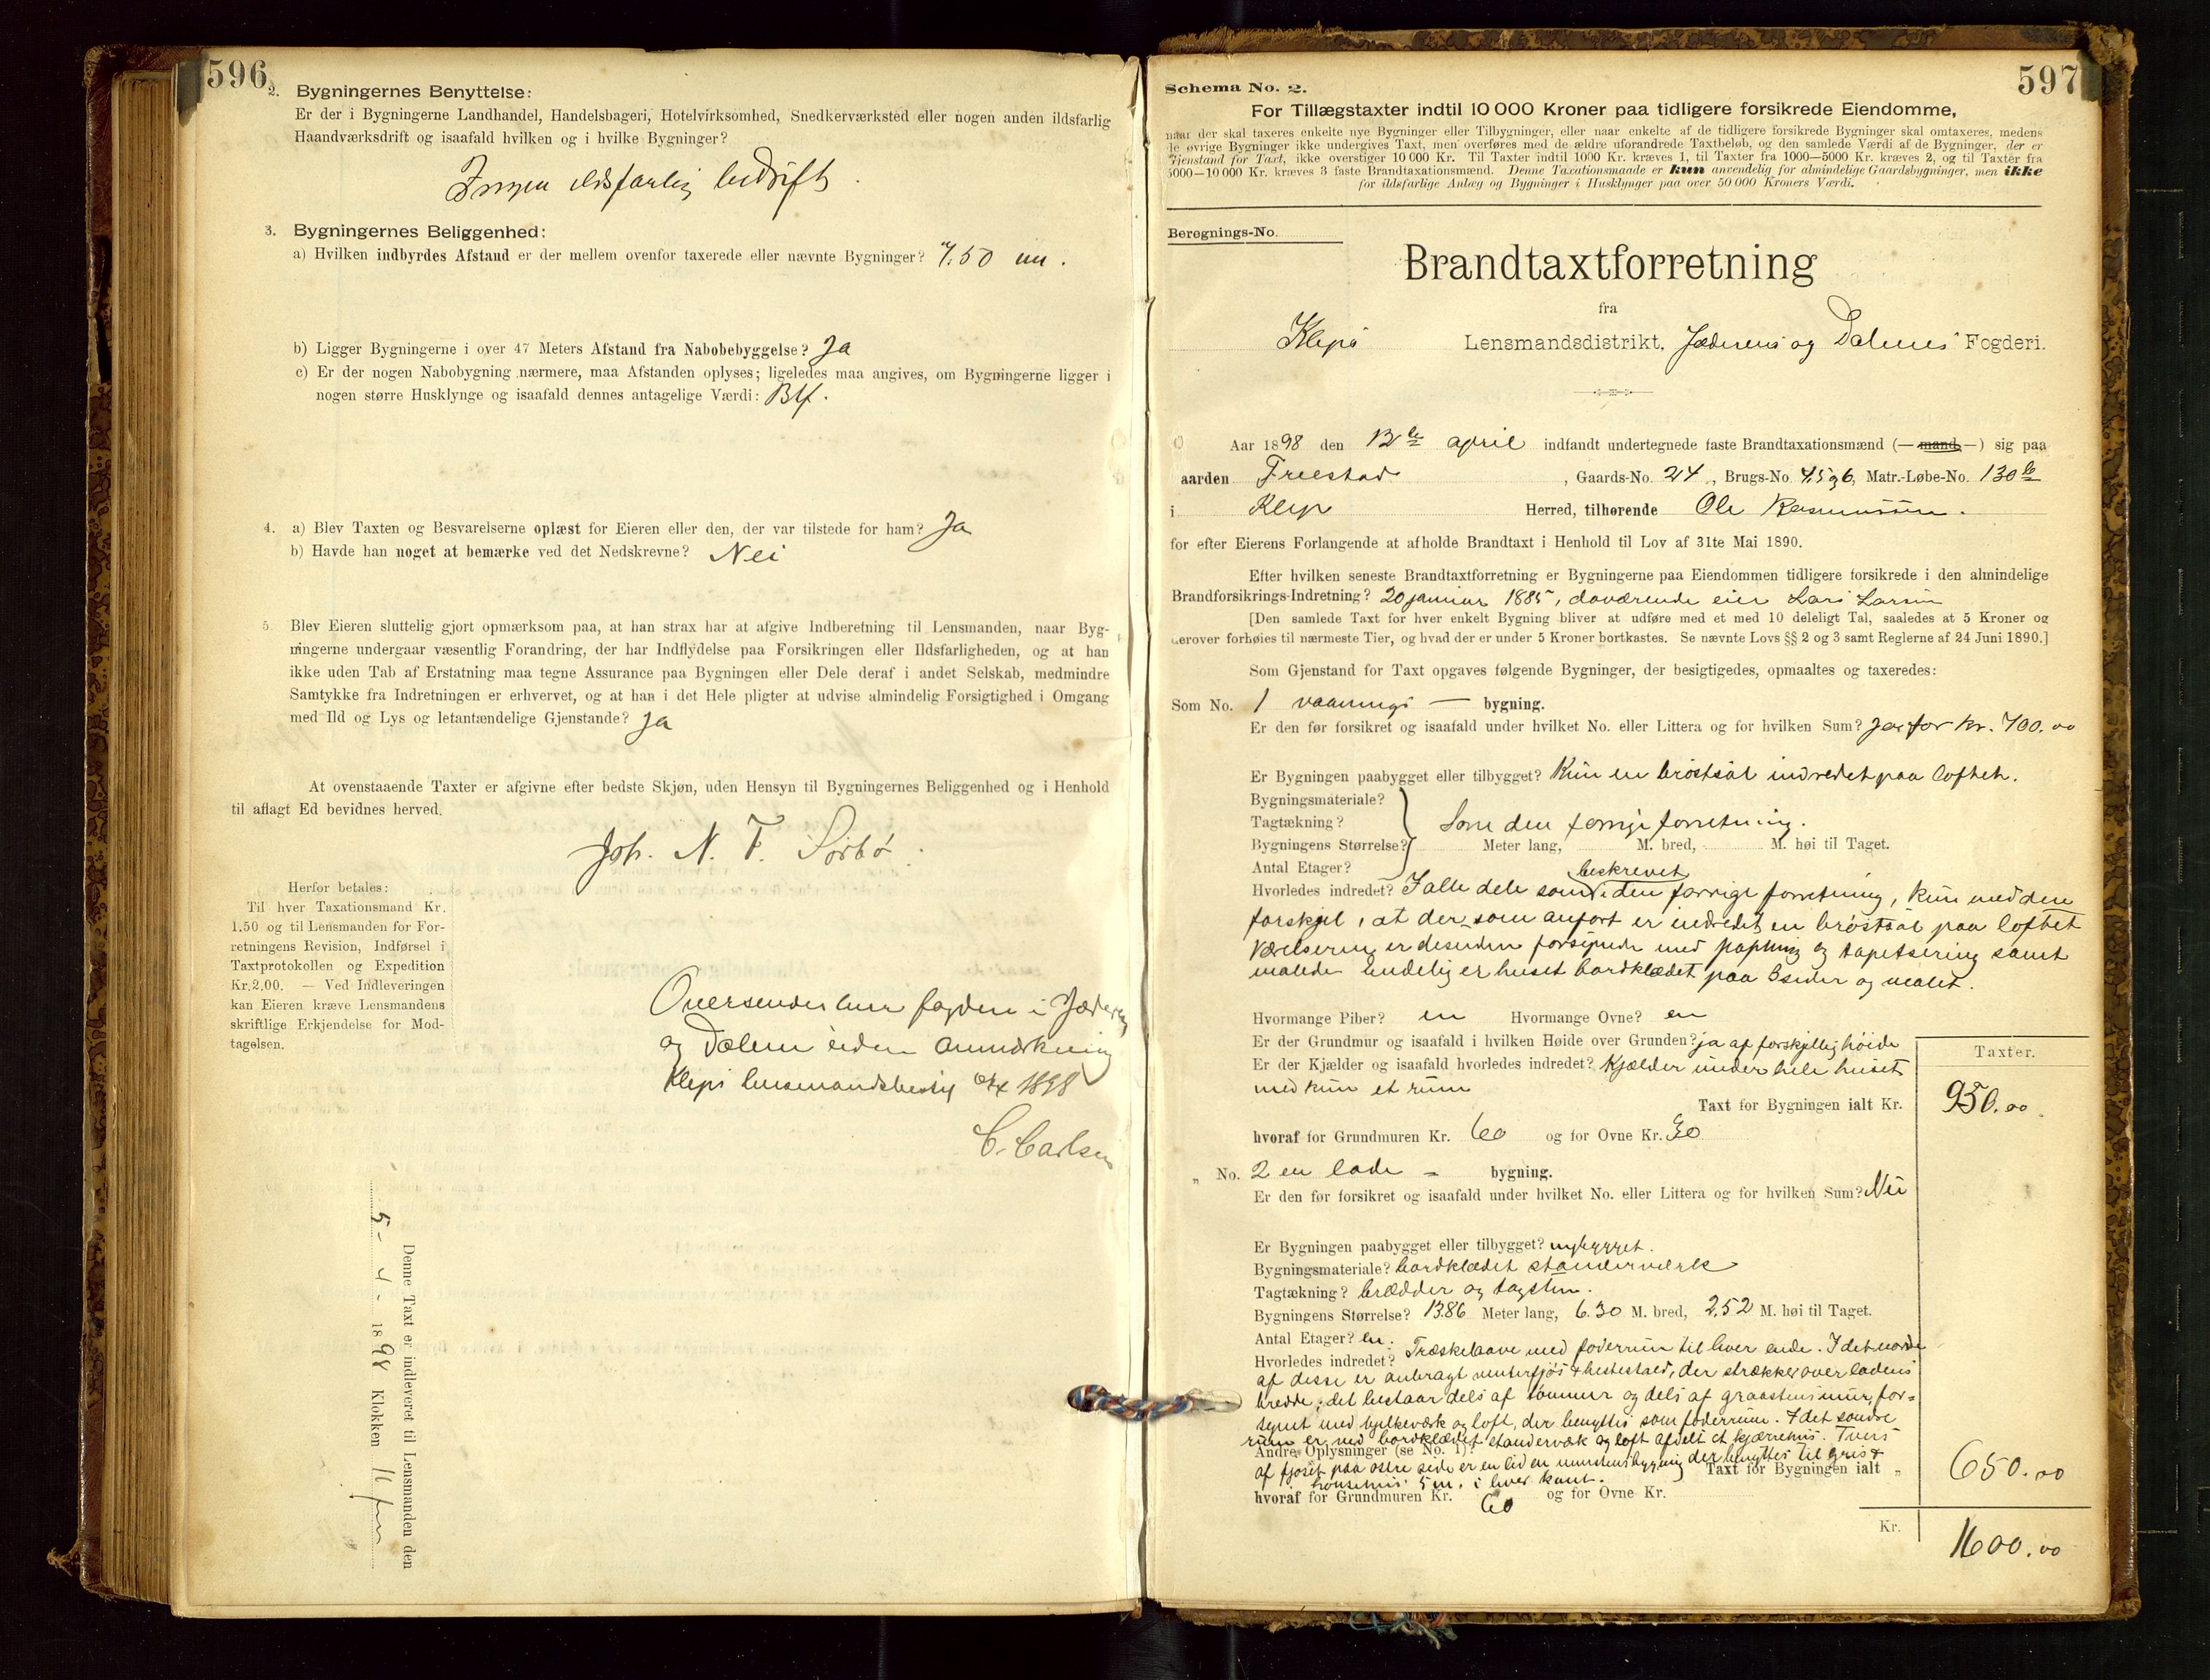 596
2. Bygningernes Benyttelse:
Er der i Bygningerne Landhandel, Handelsbageri, Hotelvirksomhed, Snedkerværksted eller nogen anden ildsfarlig
Haandværksdrift og isaafald hvilken og i hvilke Bygninger?
Ingen ildsfarlig bedrift.
3. Bygningernes Beliggenhed:
a) Hvilken indbyrdes Afstand er der mellem ovenfor taxerede eller nævnte Bygninger? 7.50 m.
b) Ligger Bygningerne i over 47 Meters Afstand fra Nabobebyggelse? Ja
c) Er der nogen Nabobygning nærmere, maa Afstanden oplyses; ligeledes maa angives, om Bygningerne ligger i
nogen større Husklynge og isaafald dennes antagelige Værdi: Blf.
4. a) Blev Taxten og Besvarelserne oplæst for Eieren eller den, der var tilstede for ham? Ja
b) Havde han noget at bemærke ved det Nedskrevne? Nei
5. Blev Eieren sluttelig gjort opmærksom paa, at han strax har at afgive Indberetning til Lensmanden, naar Byg-
ningerne undergaar væsentlig Forandring, der har Indflydelse paa Forsikringen eller Ildsfarligheden, og at han
ikke uden Tab af Erstatning maa tegne Assurance paa Bygningen eller Dele deraf i andet Selskab, medmindre
Samtykke fra Indretningen er erhvervet, og at han i det Hele pligter at udvise almindelig Forsigtighed i Omgang
med Ild og Lys og letantændelige Gjenstande? Ja
At ovenstaaende Taxter er afgivne efter bedste Skjøn, uden Hensyn til Bygningernes Beliggenhed og i Henhold
til aflagt Ed bevidnes herved.
Joh. N. F. Sørbø.
Herfor betales:
Til hver Taxationsmand Kr.
1.50 og til Lensmanden for For-
retningens Revision, Indførsel i
Taxtprotokollen og Expedition
Kr. 2.00. — Ved Indleveringen
kan Eieren kræve Lensmandens
skriftlige Erkjendelse for Mod-
tagelsen.
Oversendes herr fogden i Jæderen
og Dalene uden anmærkning
Klepp lensmandsbestil 1898
C. Carlsen
Denne Taxt er indleveret til Lensmanden den
5 - 4 - 1898 Klokken 11 fm
597
Schema No. 2.
For Tillægstaxter indtil 10 000 Kroner paa tidligere forsikrede Eiendomme,
naar der skal taxeres enkelte nye Bygninger eller Tilbygninger, eller naar enkelte af de tidligere forsikrede Bygninger skal omtaxeres, medens
de øvrige Bygninger ikke undergives Taxt, men overføres med de ældre uforandrede Taxtbeløb, og den samlede Værdi af de Bygninger, der er
Gjenstand for Taxt, ikke overstiger 10 000 Kr. Til Taxter indtil 1000 Kr. kræves 1, til Taxter fra 1000—5000 Kr. kræves 2, og til Taxter fra
5000—10 000 Kr. kræves 3 faste Brandtaxationsmænd. Denne Taxationsmaade er kun anvendelig for almindelige Gaardsbygninger, men ikke
for ildsfarlige Anlæg og Bygninger i Husklynger paa over 50 000 Kroners Værdi.
Beregnings-No.
Brandtaxtforretning
fra
Klepp Lensmandsdistrikt, Jæderens og Dalenes Fogderi.
Aar 1898 den 12te april indfandt undertegnede faste Brandtaxationsmænd (—mand—) sig paa
aarden Friestad, Gaards-No. 24, Brugs-No. 4,5 og 6, Matr.-Løbe-No. 130
i Klep Herred, tilhørende Ole Rasmussen.
for efter Eierens Forlangende at afholde Brandtaxt i Henhold til Lov af 31te Mai 1890.
Efter hvilken seneste Brandtaxtforretning er Bygningerne paa Eiendommen tidligere forsikrede i den almindelige
Brandforsikrings-Indretning? 20 januar 1885, daværende eier Lars Larsen
[Den samlede Taxt for hver enkelt Bygning bliver at udføre med et med 10 deleligt Tal, saaledes at 5 Kroner og
derover forhøies til nærmeste Tier, og hvad der er under 5 Kroner bortkastes. Se nævnte Lovs §§ 2 og 3 samt Reglerne af 24 Juni 1890.]
Som Gjenstand for Taxt opgaves følgende Bygninger, der besigtigedes, opmaaltes og taxeredes:
Som No. 1 vaanings — bygning.
Er den før forsikret og isaafald under hvilket No. eller Littera og for hvilken Sum? Ja for kr. 700.00
Er Bygningen paabygget eller tilbygget? Kun en brøstsal indredet paa loftet.
Bygningsmateriale?
Tagtækning? Som den forrige forretning.
Bygningens Størrelse? Meter lang, M. bred, M. høi til Taget.
Antal Etager?
beskrevet
Hvorledes indredet? I alle dele som i den forrige forretning, kun med den
forskjel, at der som anført er indredet en brøstsal paa loftet
værelserne er desuden forsynede med papning og tapetsering samt
malede endelig er huset bordklædet paa 3 sider og malet.
Hvormange Piber? en Hvormange Ovne? en
Er der Grundmur og isaafald i hvilken Høide over Grunden? ja af forskjellig høide
Er der Kjælder og isaafald hvorledes indredet? Kjælder under hele huset
med kun et rum
Taxter.
Taxt for Bygningen ialt Kr. 950.00
hvoraf for Grundmuren Kr. 60 og for Ovne Kr. 30
" No. 2 en lade - bygning.
Er den før forsikret og isaafald under hvilket No. eller Littera og for hvilken Sum? Nei
Er Bygningen paabygget eller tilbygget? nybygget.
Bygningsmateriale? bordklædet standerværk
Tagtækning? brædder og tagsten.
Bygningens Størrelse? 13.86 Meter lang, 6.30 M. bred, 2,52 M. høi til Taget.
Antal Etager? en.
Hvorledes indredet? Træskelaave med foderrum til hver ende. I det nordre
af disse er anbragt vinterfjøs & hestestald, der strækker over ladens
bredde; det bestaar dels af tømmer og dels af graastensmur, for-
synet med bjelkeværk og loft, der benyttes som foderrum. I det søndre
rum er ved bordklædet standerværk og loft afdelt et kjærrehus. Tvers
Andre Oplysninger (se No. 1)?
af fjøset paa østre side er en liden murstensbygning der benyttes til gris &
hønsehus 5 m. i hver kant.
Taxt for Bygningen ialt " 650.00
hvoraf for Grundmuren Kr. 60 og for Ovne Kr.
Kr. 1600.00